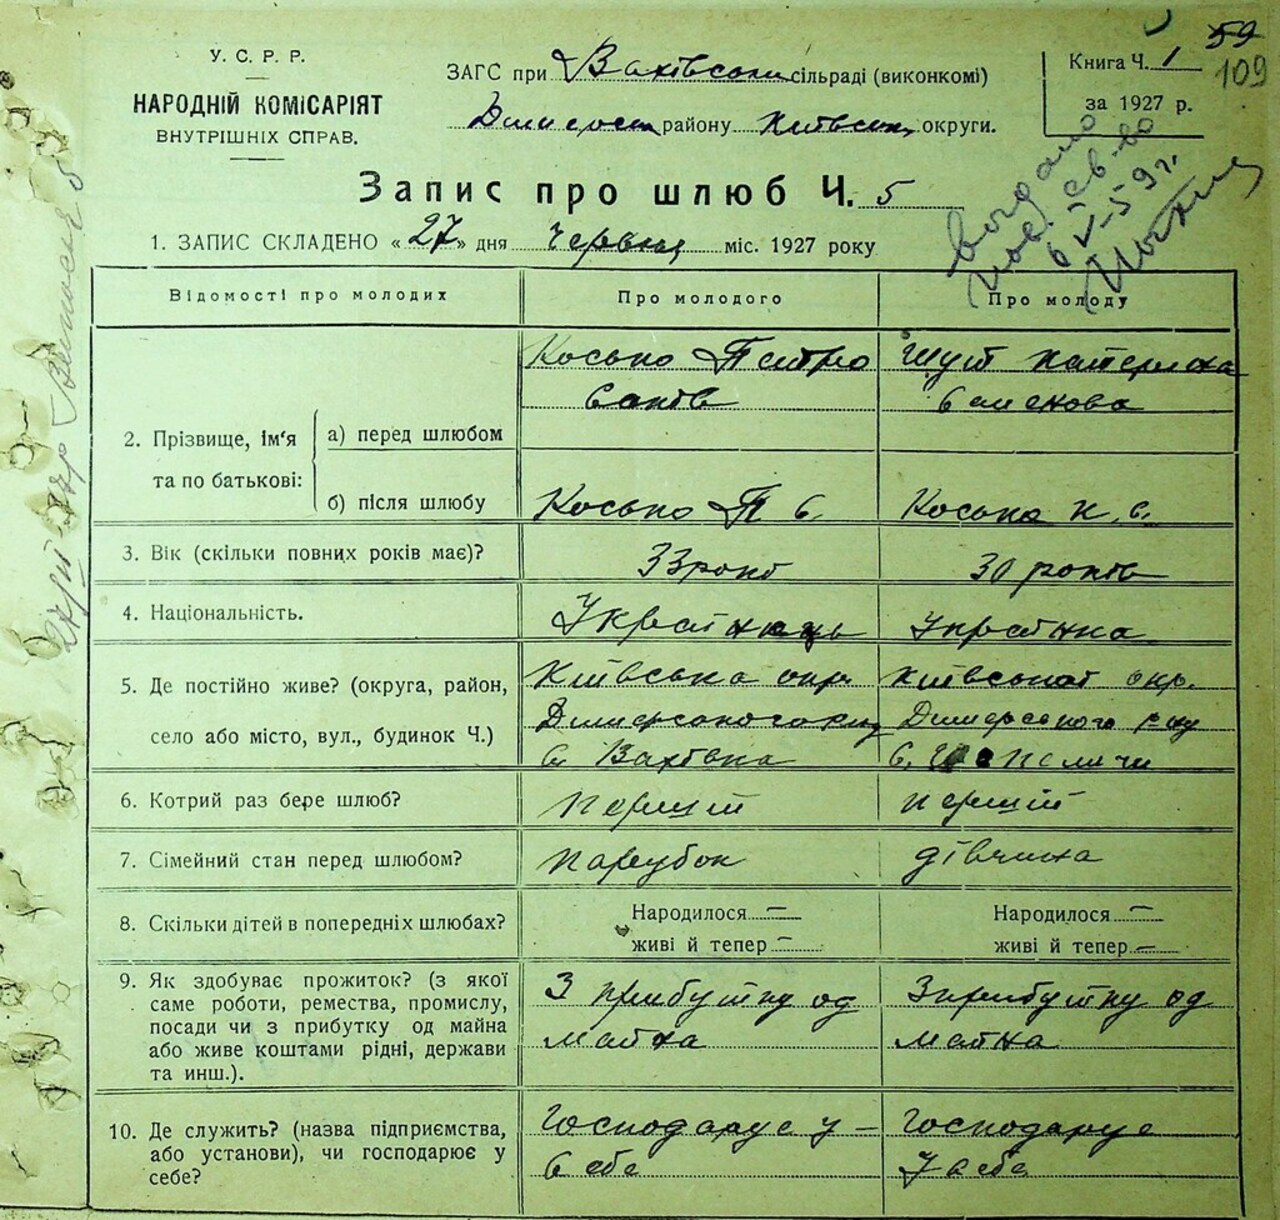 59
109
У. С. Р. Р.
НАРОДНІЙ КОМІСАРІЯТ
ВНУТРІШНІХ СПРАВ.
ЗАГС при Вахівськи сільраді (виконкомі)
Димерськ району Київськ округи.
Книга Ч. 1
за 1927 р.
Запис про шлюб Ч. 5
1. ЗАПИС СКЛАДЕНО «27» дня червня міс. 1927 року
Відомості про молодих
Про молодого
Про молоду
2. Прізвище, ім'я та по батькові:
а) перед шлюбом
Косько Петро
Шут Катерина
Семенова
б) після шлюбу
Косько П С
Косько К. С.
3. Вік (скільки повних років має)?
33 рокі
30 років
4. Національність.
Українець
Українка
5. Де постійно живе? (округа, район,
село або місто, вул., будинок Ч.)
Київська окр.
Димерського
с. Вахівка
Київської окр.
Димерського р-ну
с.
6. Котрий раз бере шлюб?
перший
перший
7. Сімейний стан перед шлюбом?
парубок
дівчина
8. Скільки дітей в попередніх шлюбах?
Народилося —
живі й тепер —
Народилося —
живі й тепер —
9. Як здобуває прожиток? (з якої
саме роботи, ремества, промислу,
посади чи з прибутку од майна
або живе коштами рідні, держави
та инш.).
З прибутку од
майна
З прибутку од
майна
10. Де служить? (назва підприємства,
або установи), чи господарює у
себе?
Господарує у
себе
Господарує
у себе